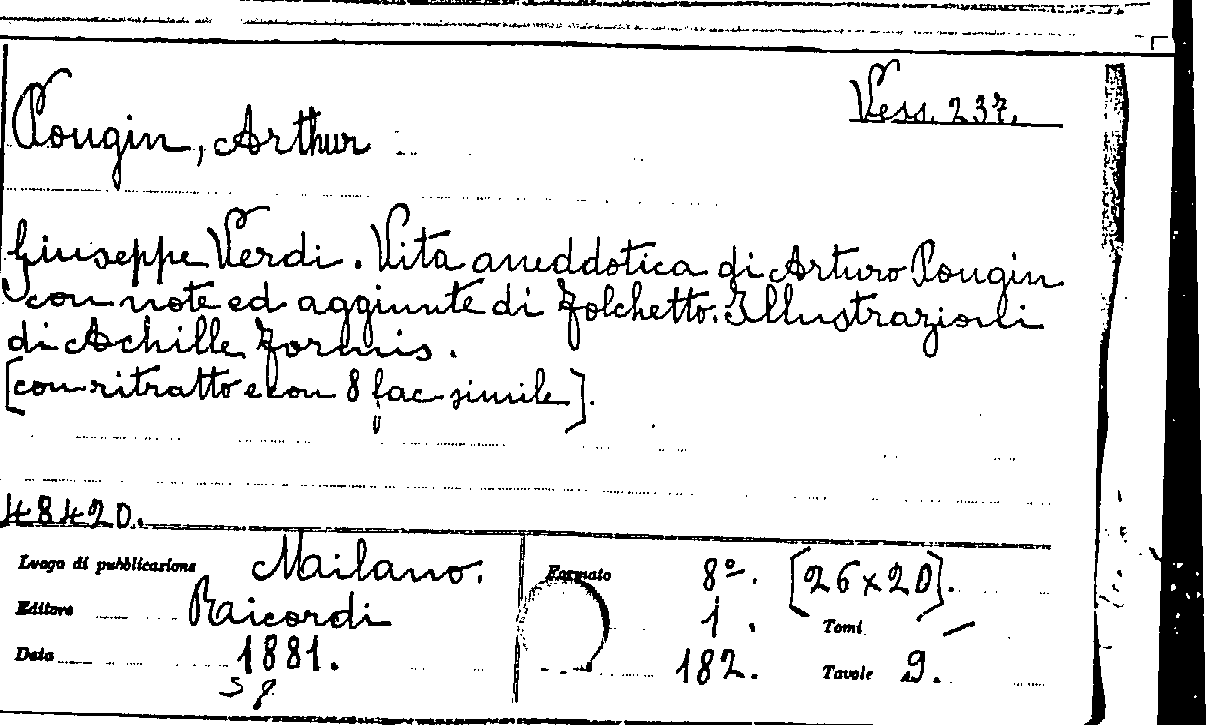 Pougin, Arthur
Vess. 237.
Giuseppe Verdi. Vita aneddotica di Arturo Pougin
con note ed aggiunte di Folchetto. Illustrazioni
di Achille Formis.
[con ritratto e con 8 fac-simile].
48420.
Luogo di pubblicazione Mailano.
Editore Raicordi
Data 1881.
58
Formato 8º. [26×20].
1. Tomi –
182. Tavole 9.